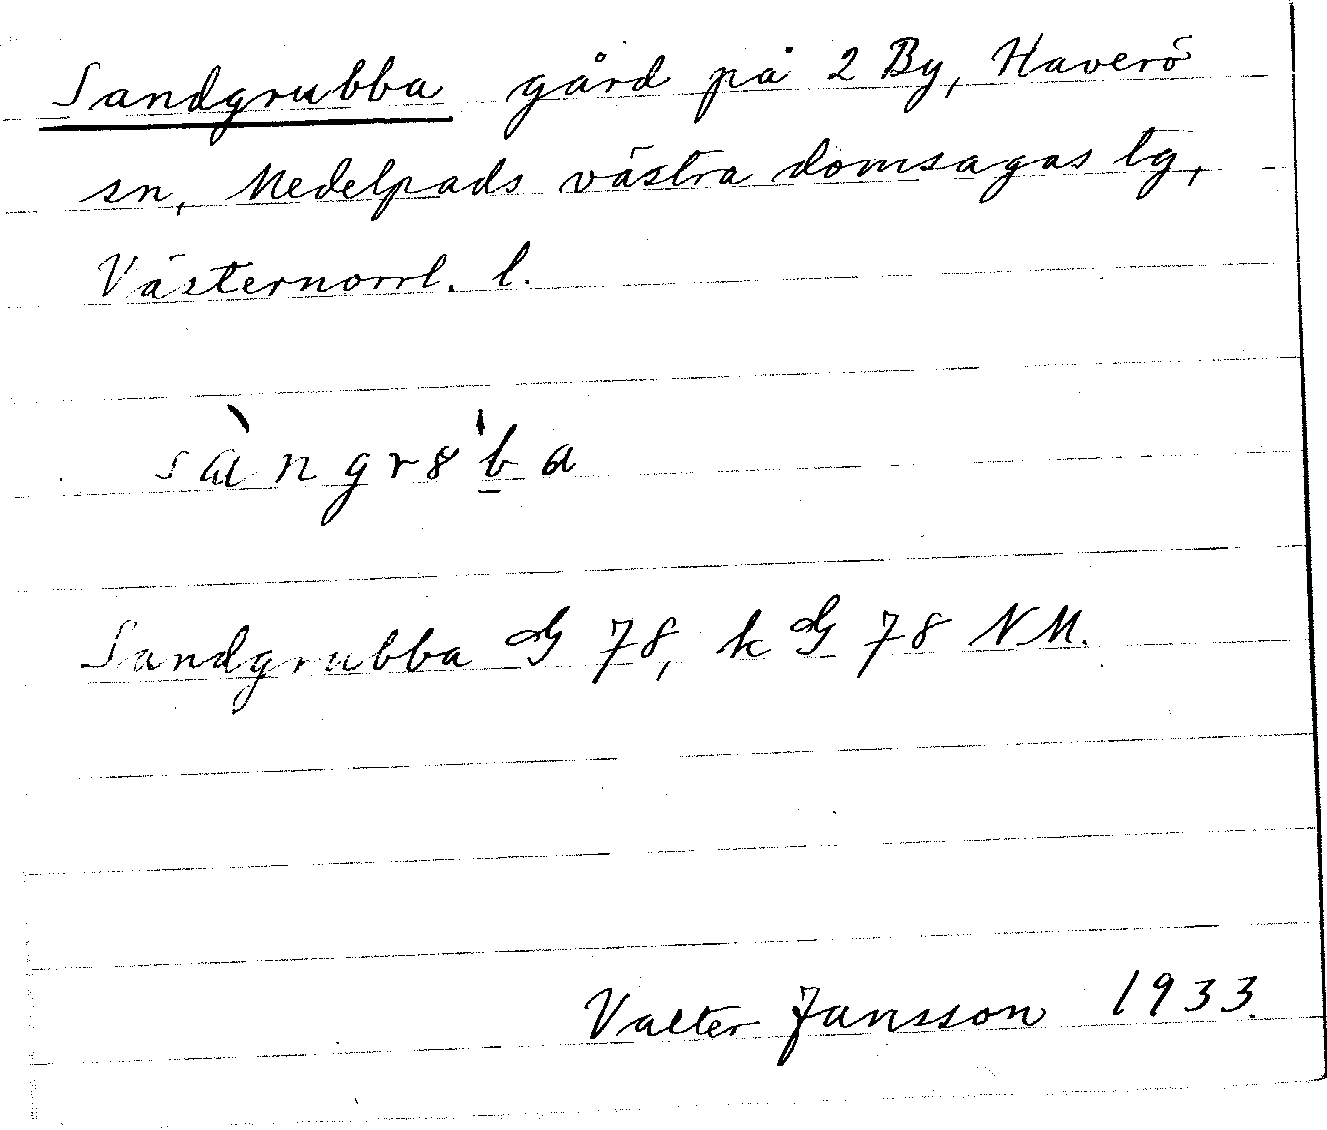 Sandgrubba gård på 2 By, Haverö
sn, Medelpads västra domsagas tg,
Västernorrl. l.
sàngr8'b̲a
Sandgrubba G 78, k G 78 NM.
Valter Jansson 1933.